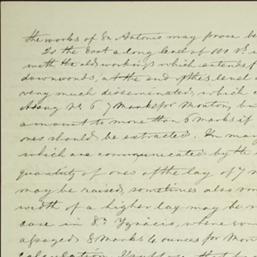 the works of Sn Antonio may prove be
To the East a long level of 100 Vs
with the old workings which extends f
downwards, at the end of this level
very much disseminated, which
along Vs 6 7 Marks for Monton, but
amount to more than 6 Marks if
ones should be extracted. In man
which are communicated by the
quantity of ores of the lay of 7 M
may be raised, sometimes also
width of a higher lay may be
case in Sn Ygnacio, where
assayed 8 Marks 4 ounces for Mon
calculation